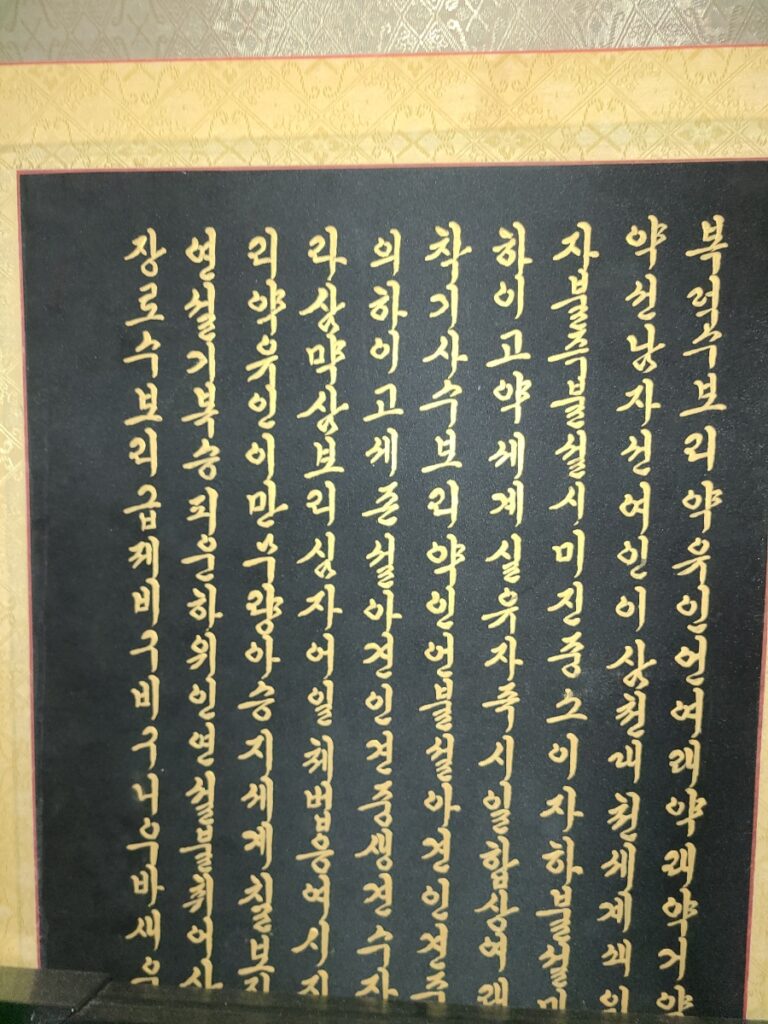 복덕수보리약유인언여래약래약거약
약선남자선여인이삼천대천세계쇄위
자불즉불설시미진중소이자하불설미
하이고약세계실유자즉시일합상여래
착기사수보리약인언불설아견인견중
의하이고세존설아견인견중생견수자
라삼먁삼보리심자어일체법응여시지
리약유인이만무량아승지세계칠보지
연설기복승피운하위인연설불취어상
장로수보리급제비구비구니우바새우